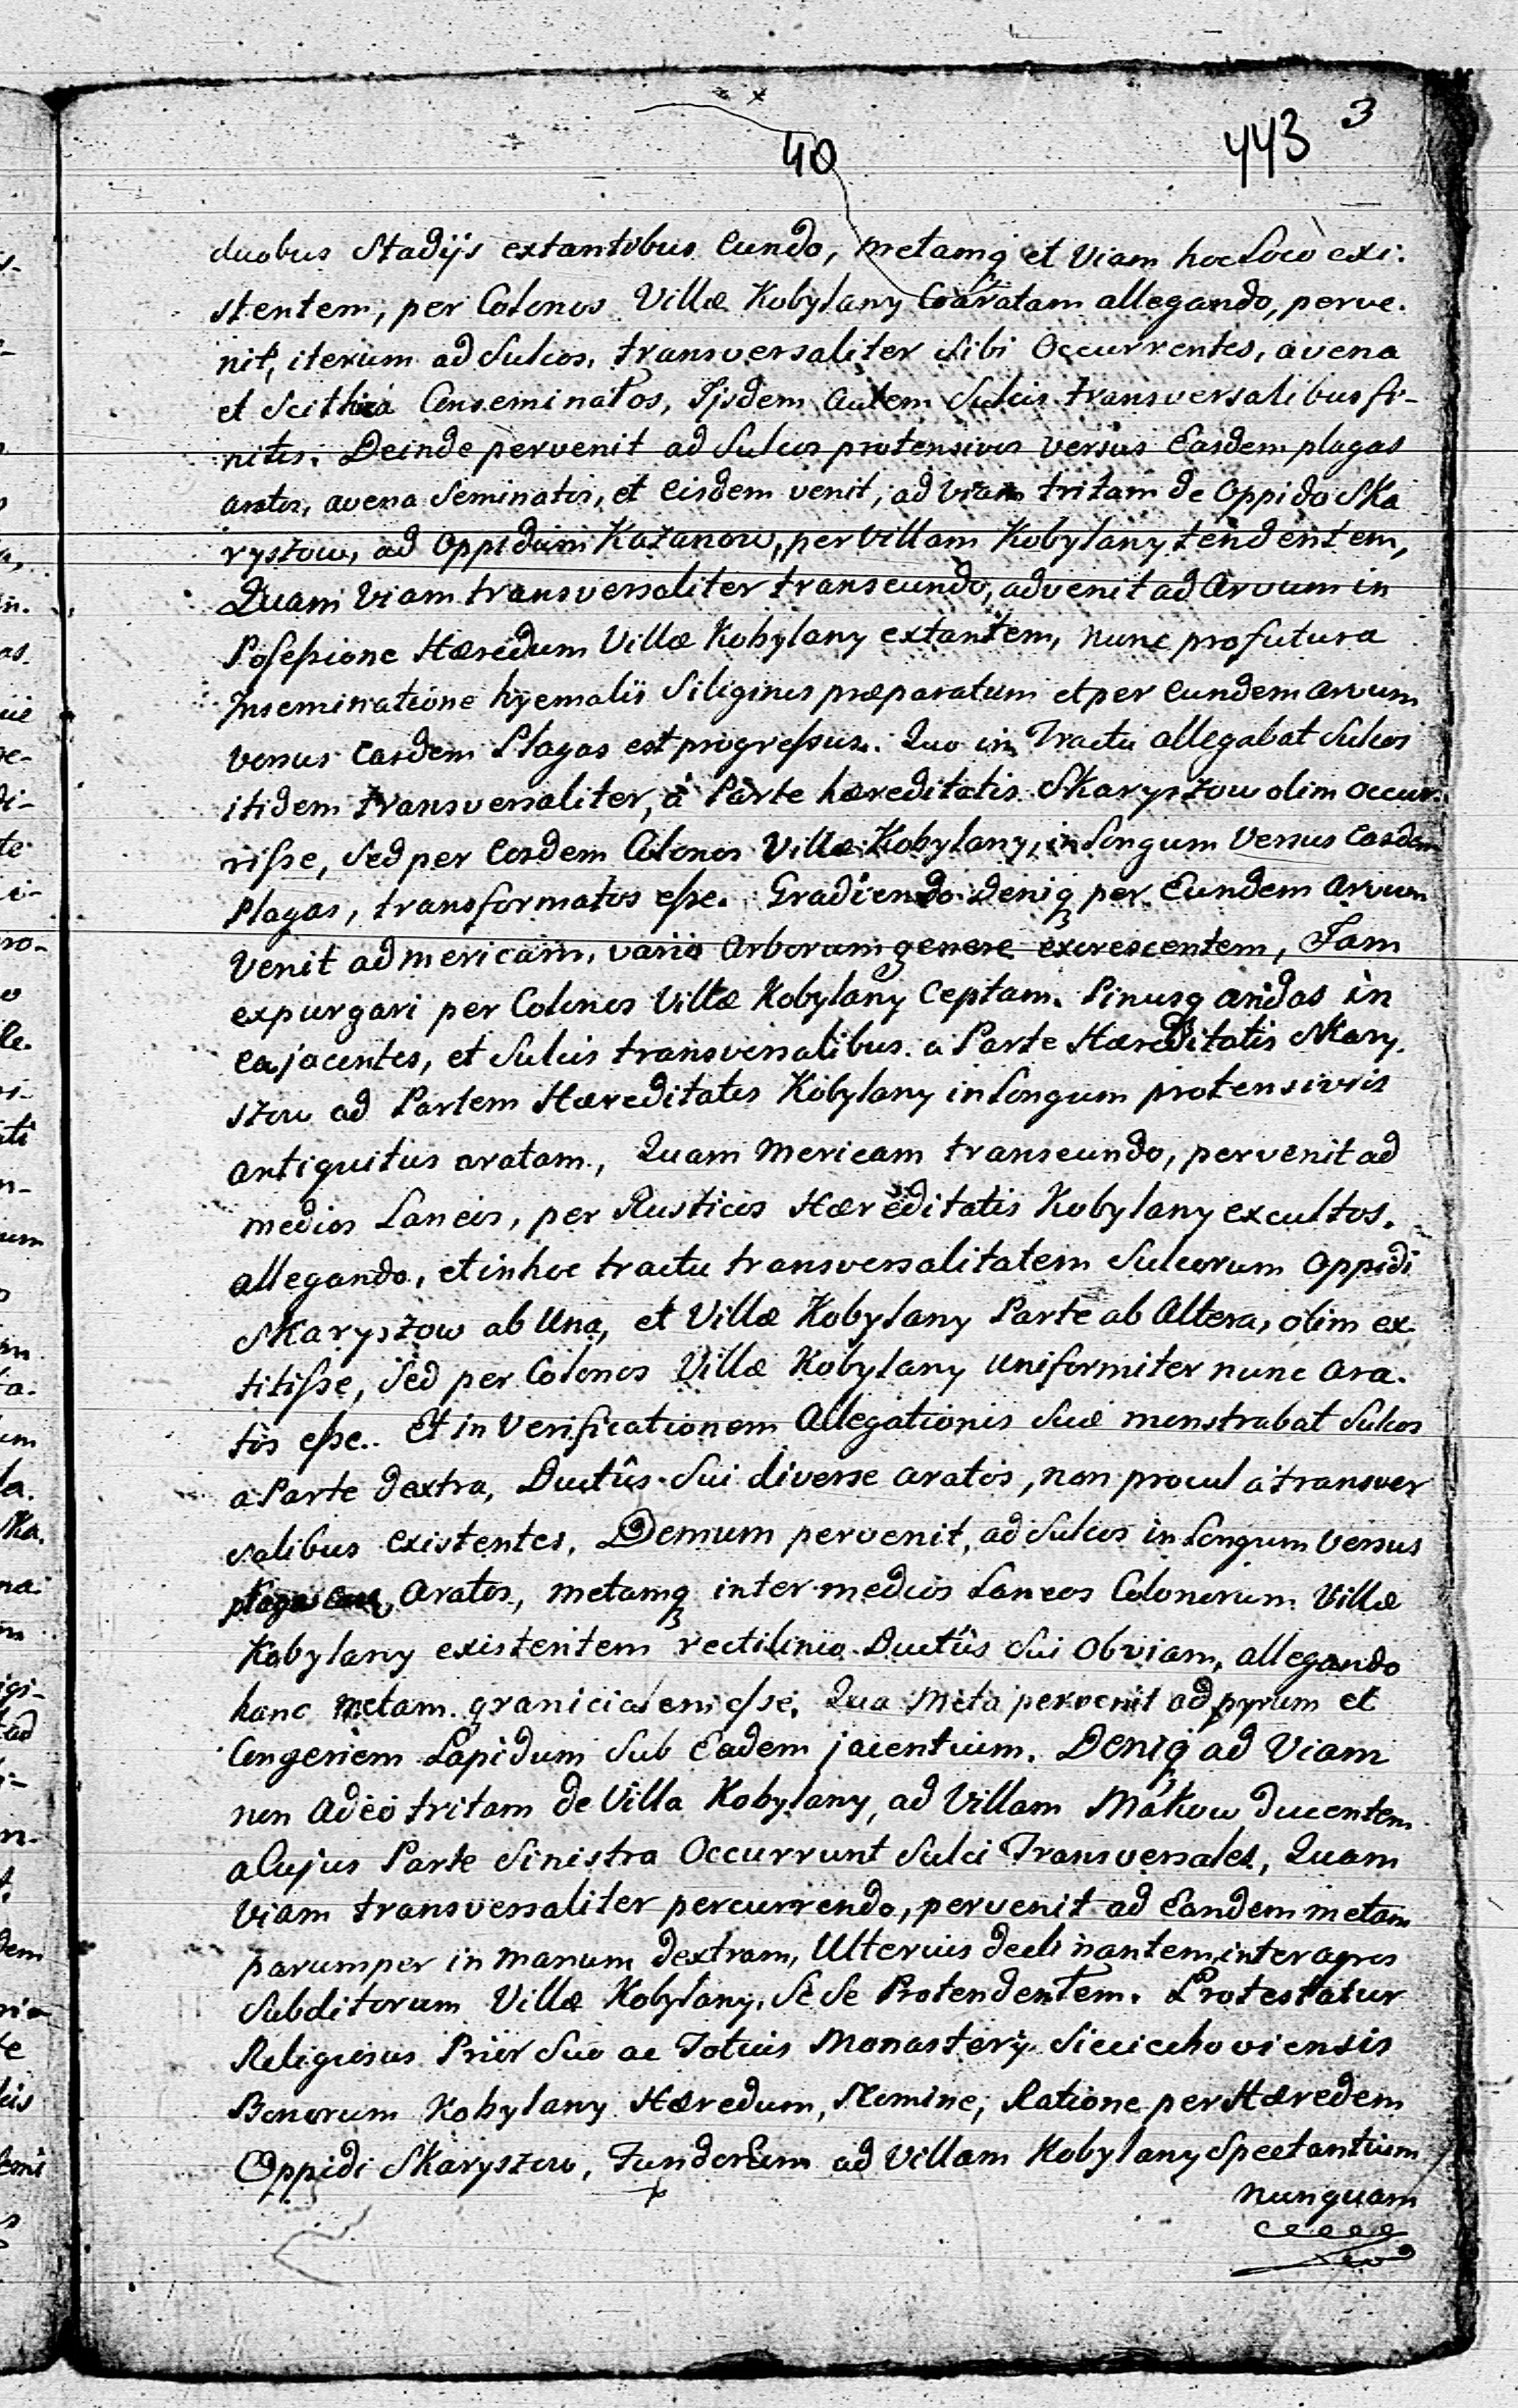 3
443
40
duobus Stadijs extantibus Eundo, metamq et Viam hoc Loco exi:
stentem, per Colonos Villæ Kobylany Coaratam allegando, perve.
nit, iterum ad Sulcos, transversaliter sibi Occurrentes, avena
et Scithia Conseminatos, Ijsdem autem Sulcis transversalibus fi-
nitis. Deinde pervenit ad Sulcos protensivos versus Easdem plagas
aratos, avena Seminatos, et Eisdem venit, ad Viam tritam de Oppido Ska
ryszow, ad Oppidum Kazanow, per Villam Kobylany tendentem,
Quam Viam transversaliter transeundo, advenit ad Arvum in
Poſeſsione Hæredum Villæ Kobylany extantem, nunc pro futura
Inseminatione hyemalis Siliginis præparatum et per Eundem arvum
versus Easdem Plagas est progreſsus. Quo in Tractu allegabat Sulcos
itidem transversaliter, à Parte hæreditatis Skaryszow olim occur.
riſse, Sed per Eosdem Colonos Villæ Kobylany, in Longum Versus Easdem
Plagas, transformatos eſse. Gradiendo Deniq per Eundem Arvum
Venit ad mericam, vario Arborum genere excrescentem, Jam
expurgari per Colonos Villæ Kobylany Ceptam. Pinusq aridas in
ea jacentes, et Sulcis transversalibus a Parte Hæreditatis Skary.
szow ad Partem Hæreditatis Kobylany in Longum protensivis
antiquitus aratam, Quam Mericam transeundo, pervenit ad
medios Laneos, per Rusticos Hæreditatis Kobylany excultos.
allegando, et in hoc tractu transversalitatem Sulcorum Oppidi
Skaryszow ab Una, et Villæ Kobylany Parte ab Altera, olim ex
titiſse, Sed per Colonos Villæ Kobylany Uniformiter nunc Ara.
tos eſse. Et in Verificationem Allegationis Suæ monstrabat Sulcos
a Parte dextra, Ductûs Sui diverse aratos, non procul à transver
salibus existentes. Demum pervenit, ad Sulcos in Longum Versus
Aratos, metamq inter medios Laneos Colonorum Villæ
Kobylany existentem rectilineo Ductûs Sui Obviam, allegando
hanc Metam granicialem eſse. Qua Meta pervenit ad pyrum et
Congeriem Lapidum Sub Eadem jacentium. Deniq ad Viam
non Adeo tritam de Villa Kobylany, ad Villam Makow ducentem
a Cujus Parte Sinistra Occurrunt Sulci Transversales, Quam
Viam transversaliter percurrendo, pervenit ad Eandem metam
parumper in manum dextram, Ulterius declinantem inter agros
Subditorum Villæ Kobylany, Se Se Protendentem. Protestatur
Religiosus Prior Suo ac Totius Monasterij Sieciechoviensis
Bonorum Kobylany Hæredum, Nomine, Ratione per Hæredem
Oppidi Skaryszow, Fundorum ad Villam Kobylany Spectantium
nunquam